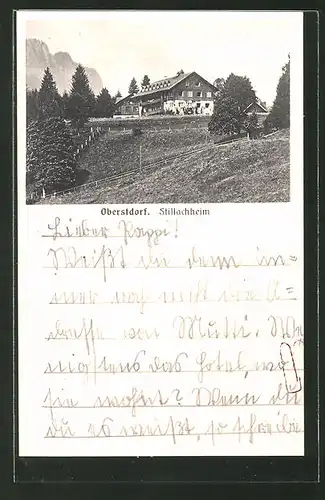 Oberstdorf. Stillachheim
Lieber Pappi!
Weißt du denn im-
mer noch nicht die A-
dresse von Mutti. We
nigstens das Hotel, wo
sie wohnt? Wenn du
du es weißt, so schreibe